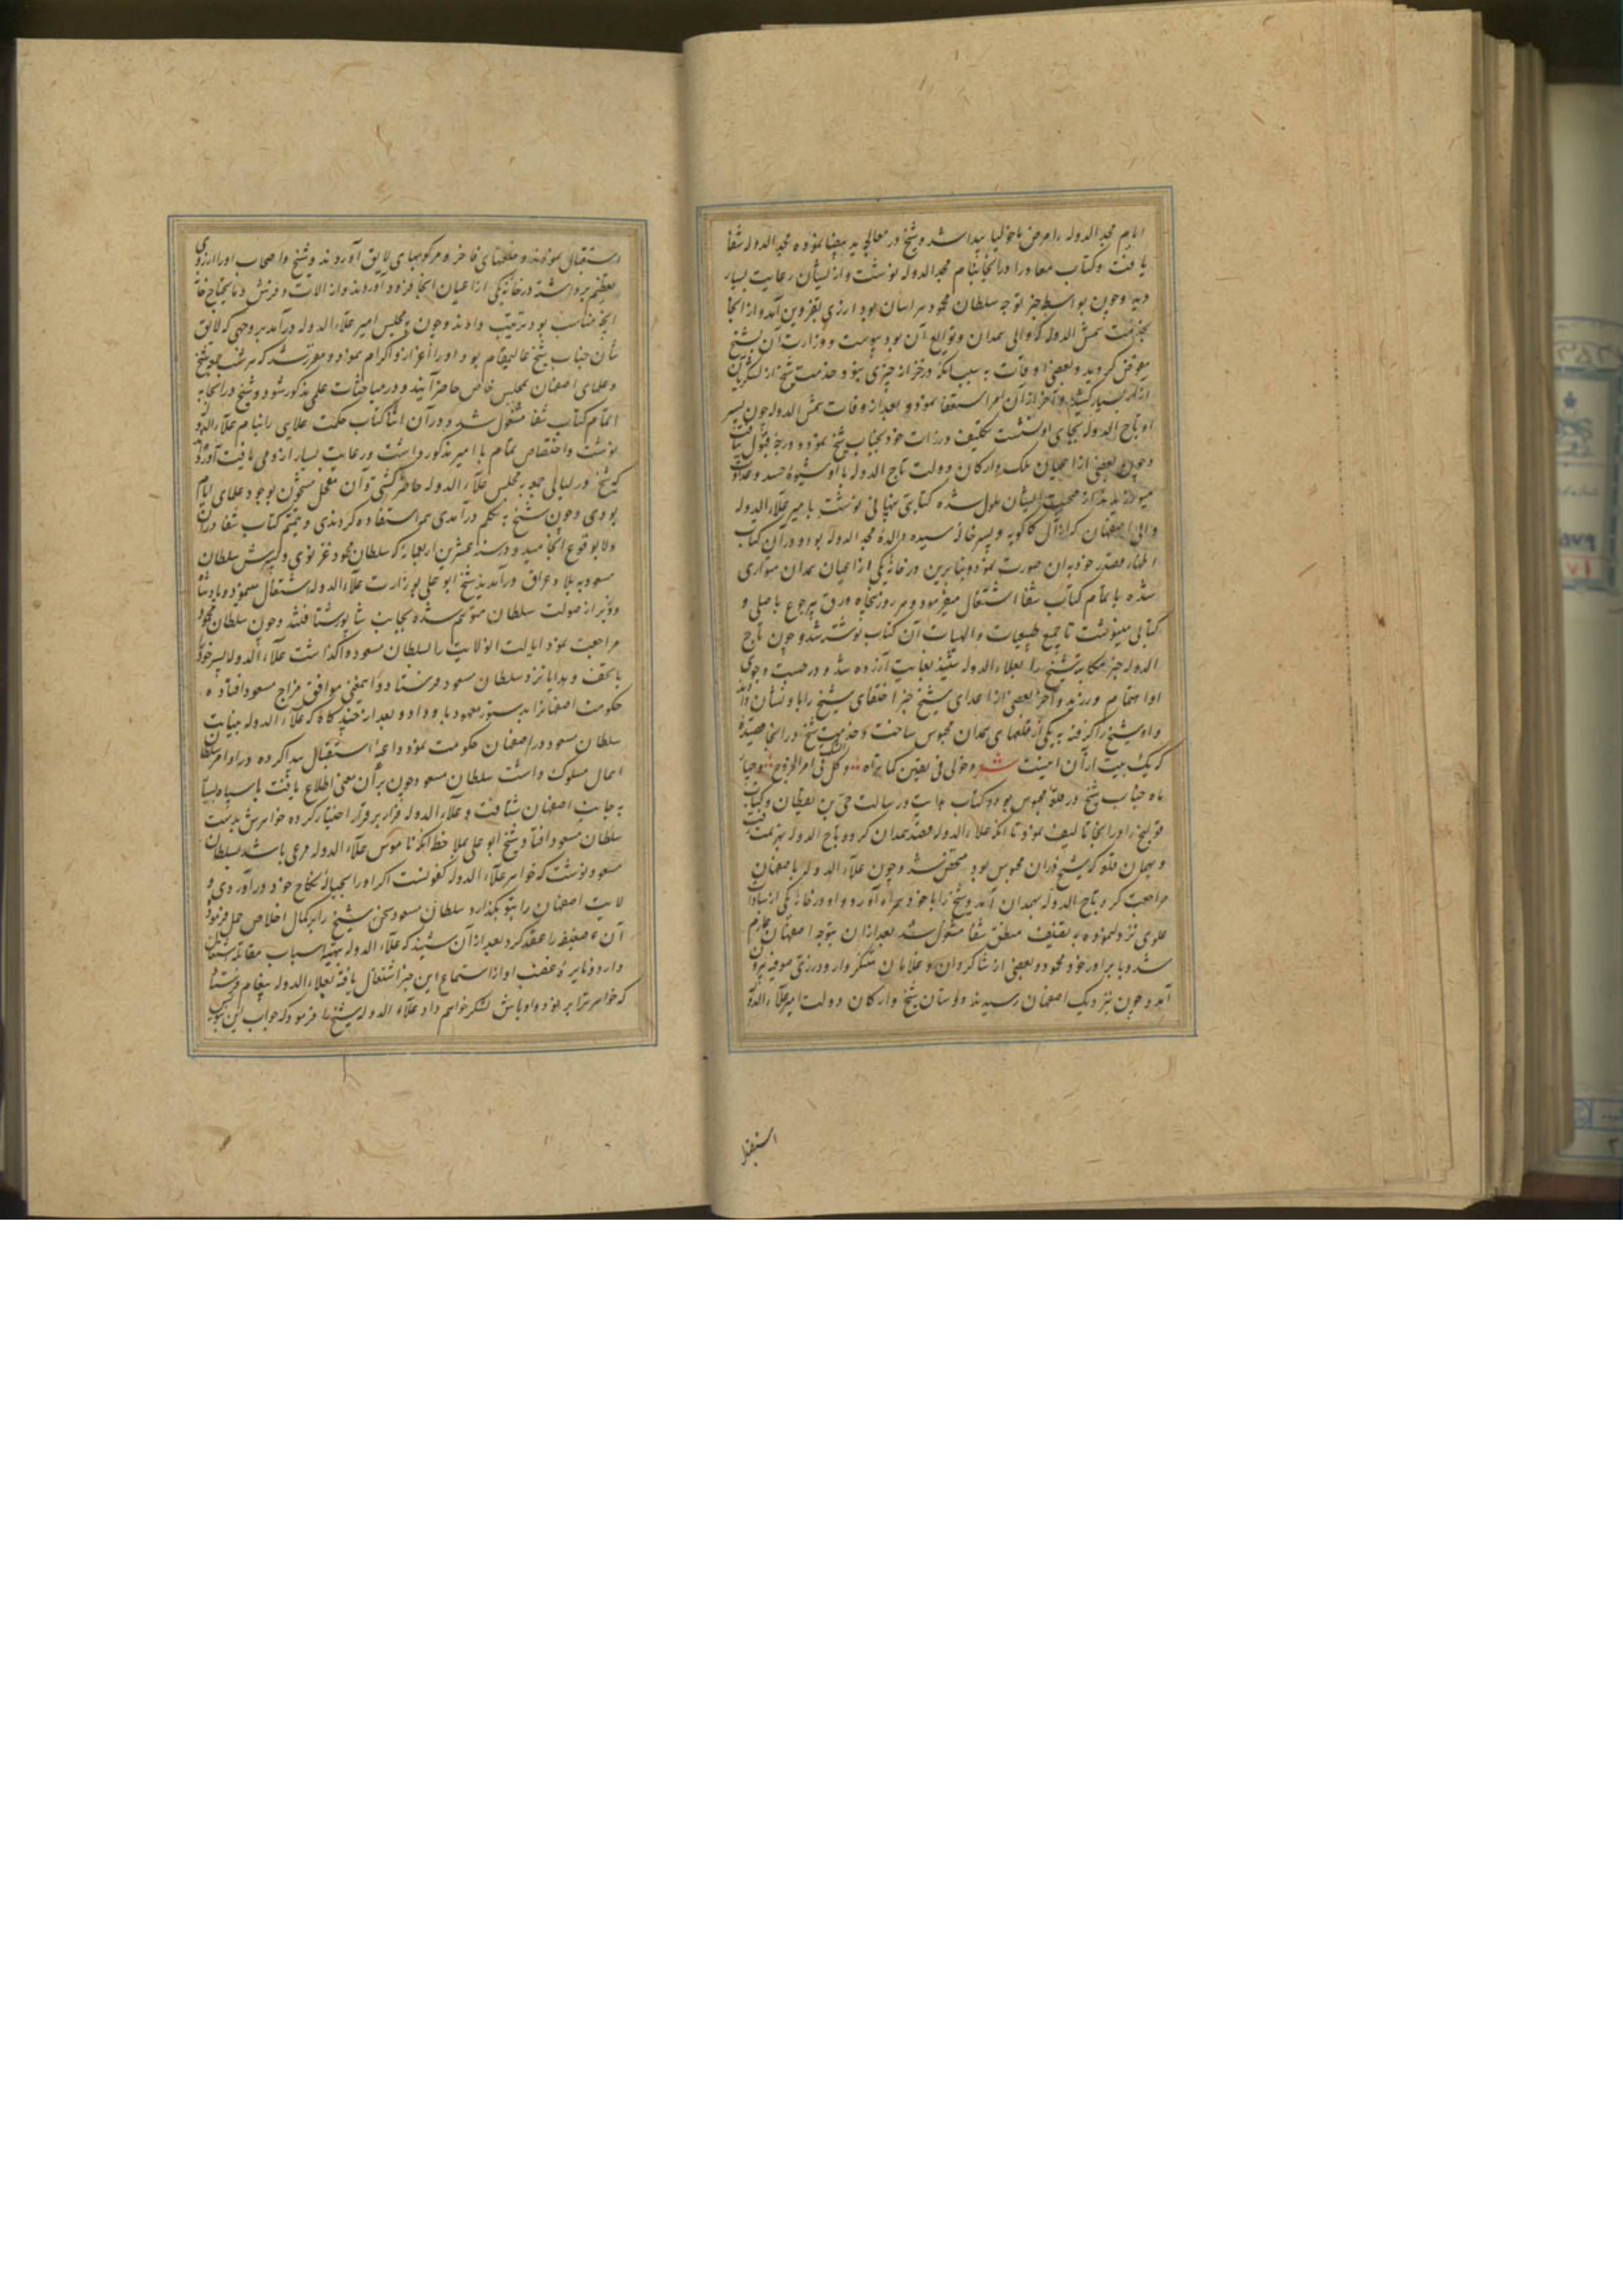 ایام مجد الدوله را مرض مالیخولیا پیدا شد و شیخ در معالجه ید بیضا نموده مجد الدوله شفا
یافت و کتاب معاد را در انجا بنام مجد الدوله نوشت و از ایشان رعایت بسیار
دید و چون بواسطه خبر توجه سلطان محمود خراسان بود از ری بقزوین آمد و از انجا
بخدمت شمس الدوله که والی همدان و توابع آن بود پیوست و وزارت آن بشیخ
مفوض گردید و بعضی اوقات به سبب آنکه در خزانه چیزی نبود خدمت شیخ از لشکریان
آزار بسیار کشید و آخر از آن امر استعفا نمود و بعد از وفات شمس الدوله چون پسر
او تاج الدوله بجای او نشست تکلیف وزارت خود بجناب شیخ نمود و درجه قبول نیافت
و چون بعضی از اعیان ملک و ارکان دولت تاج الدوله با او شیوه حسد و عداوت
میورزیدند از صحبت ایشان ملول شده کتابتی پنهانی نوشت بامیر علاء الدوله
والی اصفهان که از آل کاکویه و پسر خاله سیده والده مجد الدوله بود و در آن کتاب
اظهار قصد خود بدان صورت نمود و بنابرین در خانه یکی از اعیان همدان متواری
شده باتمام کتاب شفا اشتغال میفرمود و هر روز پنجاه ورق بی رجوع باصلی و
کتابی مینوشت تا جمیع طبیعیات و الهیات آن کتاب نوشته شد و چون تاج
الدوله خبر مکاتبه شیخ را بعلاء الدوله شنید بغایت آزرده شد و در جست و جوی
او اهتمام ورزید و آخر بعضی از اعدای شیخ خبر اختفای شیخ را باو نشان دادند
و او شیخ را گرفته به یکی از قلعهای همدان محبوس ساخت و خدمت شیخ در انجا قصیده
که یک بیت از آن اینست شعر دخولی فی یقین کما تراه و کل الشک فی امر الخروج و چهار
ماه جناب شیخ در قلعه محبوس بود و کتاب هدایت و رسالت حی بن یقظان و کتاب
قولنج را در انجا تالیف نمود تا آنکه علاء الدوله قصد همدان کرد و تاج الدوله بهزیمت رفت
و بهمان قلعه که شیخ در ان محبوس بود متحصن شد و چون علاء الدوله باصفهان
مراجعت کرد تاج الدوله بهمدان آمد و شیخ را با خود همراه آورد و او در خانه یکی از سادات
علوی نزول نموده به تصنیف منطق شفا مشغول شد بعد از ان بتوجه اصفهان عازم
شد و با برادر خود محمود و بعضی از شاگردان و غلامان متنکر وار در زی صوفیه بیرون
آمد و چون نزدیک اصفهان رسیدند دوستان شیخ و ارکان دولت امیر علاء الدوله
استقبال
استقبال نمودند و خلعتهای فاخر و مرکوبهای لایق آوردند و شیخ و اصحاب او را از روی
تعظیم برداشته در خانه یکی از اعیان انجا فرود آوردند و از الات و فرش و مایحتاج خانه
آنچه مناسب بود ترتیب دادند و چون به مجلس امیر علاء الدوله درآمد بر وجهی که لایق
شان جناب شیخ عالیمقام بود او را اعزاز و اکرام نمود و مقرر شد که هر شب جمعه شیخ
و علمای اصفهان بمجلس خاص حاضر آیند و در مباحثات علمی مذکور شود و شیخ در انجا به
اتمام کتاب شفا مشغول شد و در آن اثنا کتاب حکمت علایی را بنام علاء الدوله
نوشت و اختصاص تمام با امیر مذکور داشت و رعایت بسیار از وی یافت آورده‌اند
که شیخ در لیالی جمعه به مجلس علاء الدوله حاضر گشتی و آن محفل مشحون بوجود علمای ایام
بودی و چون شیخ به تکلم درآمدی همه استفاده کردندی و تتمیم کتاب شفا در ان
ولا بوقوع انجامید و در سنه عشرین اربعمایه که سلطان محمود غزنوی و پسرش سلطان
مسعود به بلاد عراق درآمدند شیخ ابو علی بوزارت علاء الدوله اشتغال مینمود و پادشاه
وزیر از صولت سلطان متوهم شده بجانب شاپور شتافتند و چون سلطان محمود
مراجعت نمود ایالت انولایت را بسلطان مسعود واگذاشت علاء الدوله پسر خود را
با تحف و هدایا نزد سلطان مسعود فرستاد و اینمعنی موافق مزاج مسعود افتاده
حکومت اصفهانرا بدستور معهود باو داد و بعد از چندگاه که علاء الدوله بنیابت
سلطان مسعود در اصفهان حکومت نمود داعیه استقلال پیدا کرده در اوامر سلطان
اهمال مسلوک داشت سلطان مسعود چون بر آن معنی اطلاع یافت با سپاه بسیار
به جانب اصفهان شتافت و علاء الدوله فرار بر قرار اختیار کرده خواهرش بدست
سلطان مسعود افتاد و شیخ ابو علی بملاحظه آنکه ناموس علاء الدوله مرعی باشد بسلطان
مسعود نوشت که خواهر علاء الدوله کفو تست اگر او را بحباله نکاح خود درآوردی و
لایت اصفهان را بتو بگذارد سلطان مسعود سخن شیخ را بر کمال اخلاص حمل فرموده
آن عفیفه را عقد کرد بعد از آن شنید که علاء الدوله بتهیه اسباب مقاتله اشتغال
دارد نایره غضب او از استماع این خبر اشتعال یافته بعلاء الدوله پیغام فرستاد
که خواهر ترا برنود و اوباش لشکر خواهم داد علاء الدوله شیخ را فرمود که جواب این بنویس